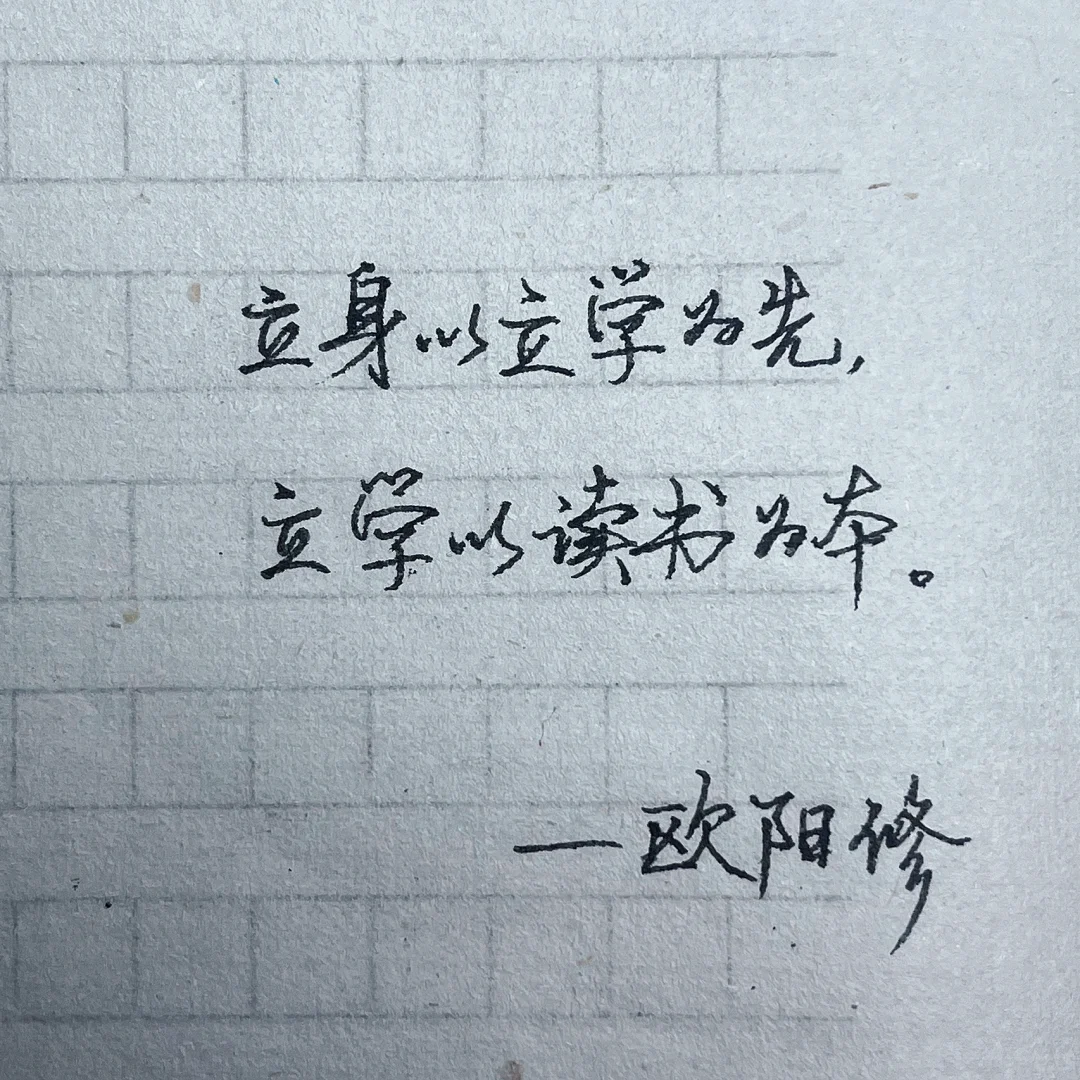 立身以立学为先,
立学以读书为本。
—欧阳修